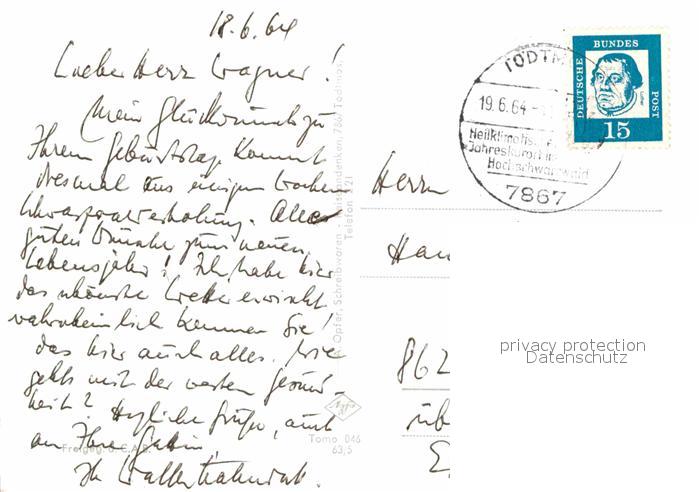 18.6.64
Lieber Herr Wagner!
Mein Glückwunsch zu
Ihrem Geburtstag kommt
diesmal aus einigen Wochen
Schwarzwalderholung. Alle
guten Wünsche zum neuen
Lebensjahr! Ich habe hier
das schönste Wetter erwischt
wahrscheinlich kennen Sie
das hier auch alles. Wie
geht's mit der werten Gesund-
heit? Herzliche Grüße, auch
an Ihre Gattin,
Ihr
Opfer, Schreibwaren -
Telefon
Freigeg. d.
Tomo 046
63/5
Agfa
TODTM
19.6.64
Heilklimatisch
Jahreskurort im
Hochschwarzwald
7867
DEUTSCHE
BUNDES
POST
Luther
15
Herrn
Han
862
üb
E
privacy protection
Datenschutz